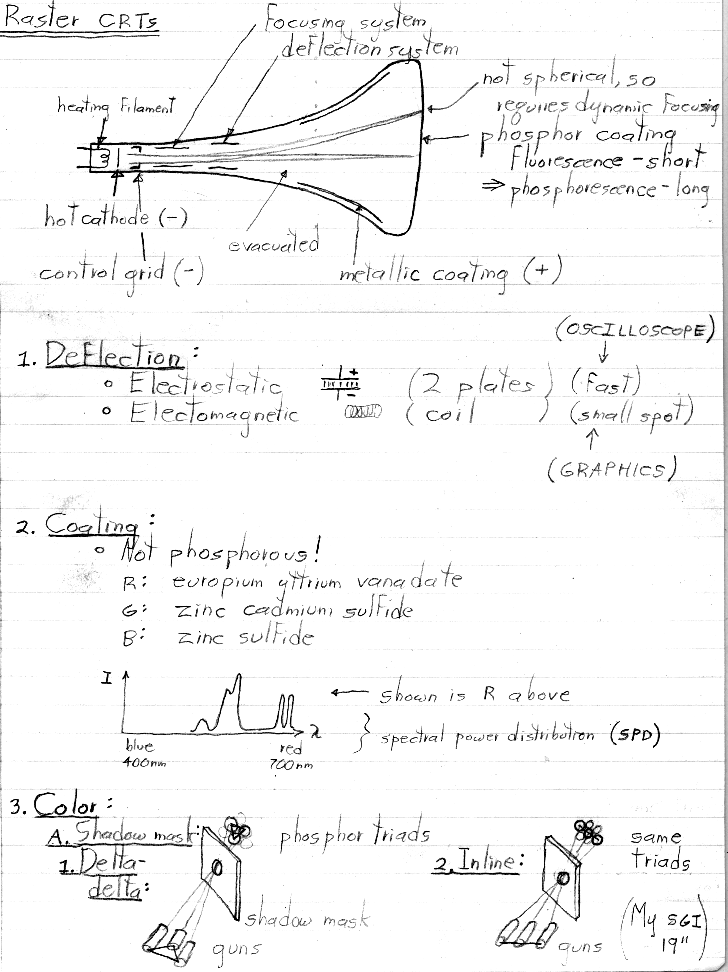 Raster CRTs
Focusing system
deflection system
heating Filament
not spherical, so
requires dynamic Focusing
phosphor coating
Fluorescence - short
⇒ phosphorescence - long
hot cathode (-)
evacuated
control grid (-)
metallic coating (+)
(OSCILLOSCOPE)
1. Deflection:
o Electrostatic + - (2 plates) (fast)
o Electomagnetic (coil) (small spot)
(GRAPHICS)
2. Coating:
o Not phosphorous!
R: europium yttrium vanadate
G: zinc cadmium sulfide
B: zinc sulfide
I
← shown is R above
λ
} spectral power distribution (SPD)
blue red
400nm 700nm
3. Color:
A. Shadow mask: phosphor triads
1. Delta-
delta:
shadow mask
guns
2. Inline:
same
triads
guns
(My SGI
19")